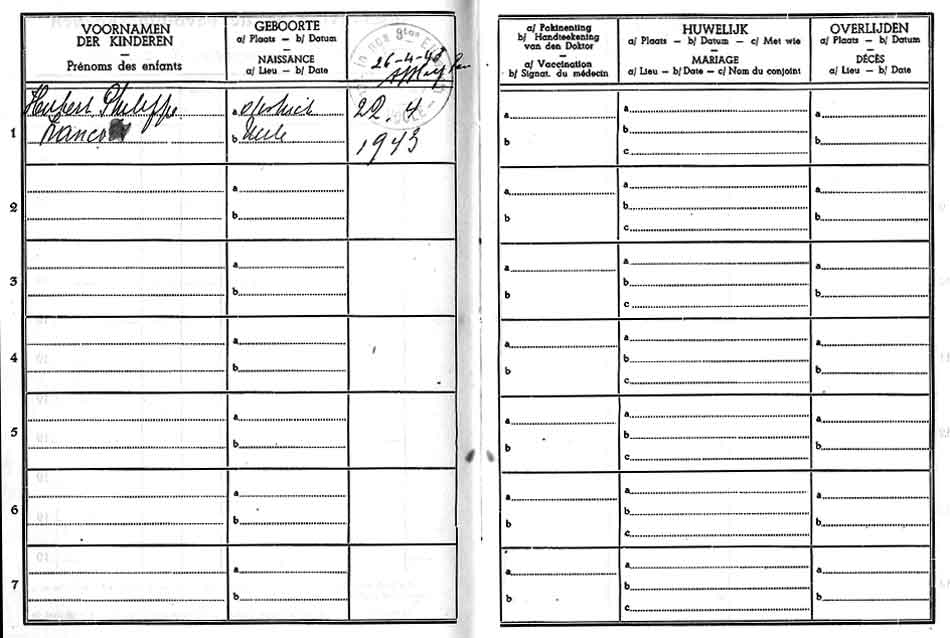 VOORNAMEN
DER KINDEREN
Prénoms des enfants
GEBOORTE
a/ Plaats — b/ Datum
NAISSANCE
a/ Lieu — b/ Date
26-4-43
a/ Pokinenting
b/ Handteekening
van den Doktor
a/ Vaccination
b/ Signat. du médecin
HUWELIJK
a/ Plaats — b/ Datum — c/ Met wie
MARIAGE
a/ Lieu — b/ Date — c/ Nom du conjoint
OVERLIJDEN
a/ Plaats — b/ Datum
DÉCÈS
a/ Lieu — b/ Date
1
Hubert Philippe
a
22.4
b
1943
a
b
a
b
c
a
b
2
a
b
a
b
a
b
c
a
b
3
a
b
a
b
a
b
c
a
b
4
a
b
a
b
a
b
c
a
b
5
a
b
a
b
a
b
c
a
b
6
a
b
a
b
a
b
c
a
b
7
a
b
a
b
a
b
c
a
b